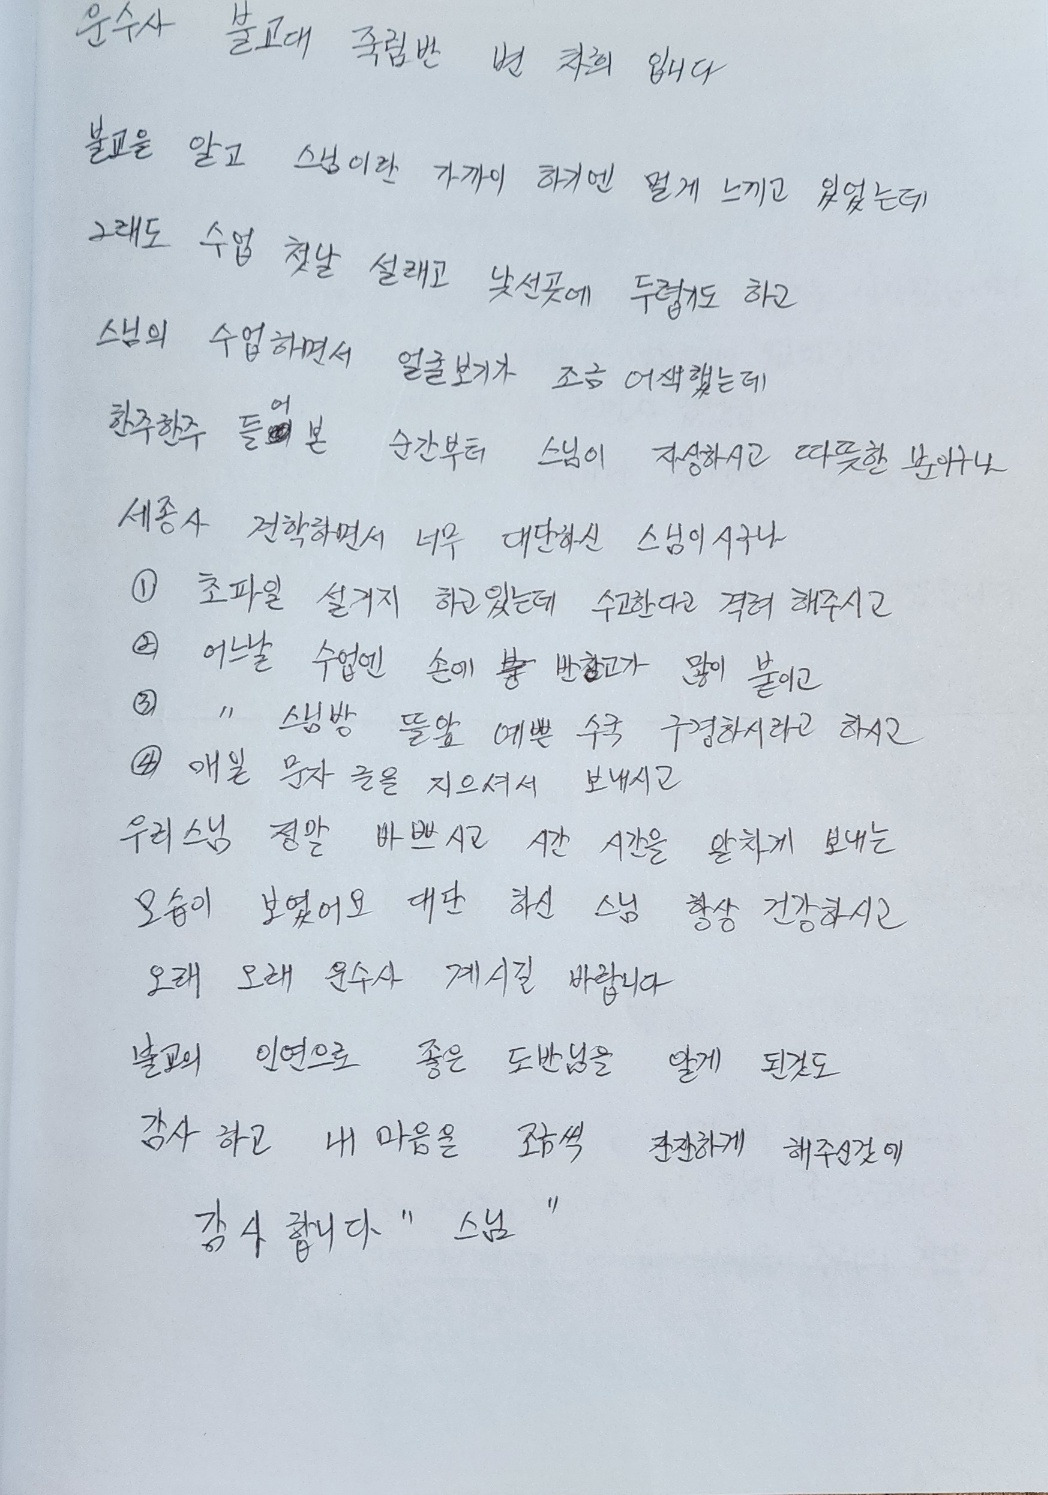 운수사 불교대 죽림반 변 차희 입니다
불교을 알고 스님이란 가까이 하기엔 멀게 느끼고 있었는데
그래도 수업 첫날 설래고 낯선곳에 두렵기도 하고
스님의 수업하면서 얼굴보기가 조금 어색했는데
한주한주 들어 본 순간부터 스님이 자상하시고 따뜻한 분이구나
세종사 견학하면서 너무 대단하신 스님이시구나
① 초파일 설거지 하고있는데 수고한다고 격려 해주시고
② 어느날 수업엔 손에 반창고가 많이 붙이고
③ " 스님방 뜰앞 예쁜 수국 구경하시라고 하시고
④ 매일 문자 글을 지으셔서 보내시고
우리스님 정말 바쁘시고 시간 시간을 알차게 보내는
모습이 보였어요 대단 하신 스님 항상 건강하시고
오래 오래 운수사 계시길 바랍니다
불교의 인연으로 좋은 도반님을 알게 된것도
감사 하고 내 마음을 조금씩 잔잔하게 해주신것에
감사 합니다 " 스님 "